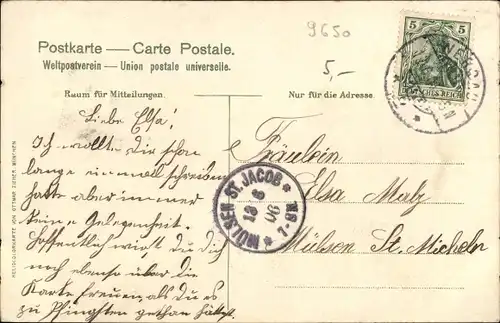 9650
5
DEUTSCHES REICH
Postkarte — Carte Postale.
Weltpostverein — Union postale universelle.
5,-
Raum für Mitteilungen.
Nur für die Adresse
Liebe Elsa!
Ich wollte Dir schon
lange einmal schreiben
hatte aber immer
keine Gelegenheit.
Hoffentlich wirst du dich
noch ebenso über die
Karte freuen als du es
zu Pfingsten gethan hättest.
Fräulein
Elsa Malz
Mülsen St. Micheln
MÜLSEN ST. JACOB
13 6 06
7-8N